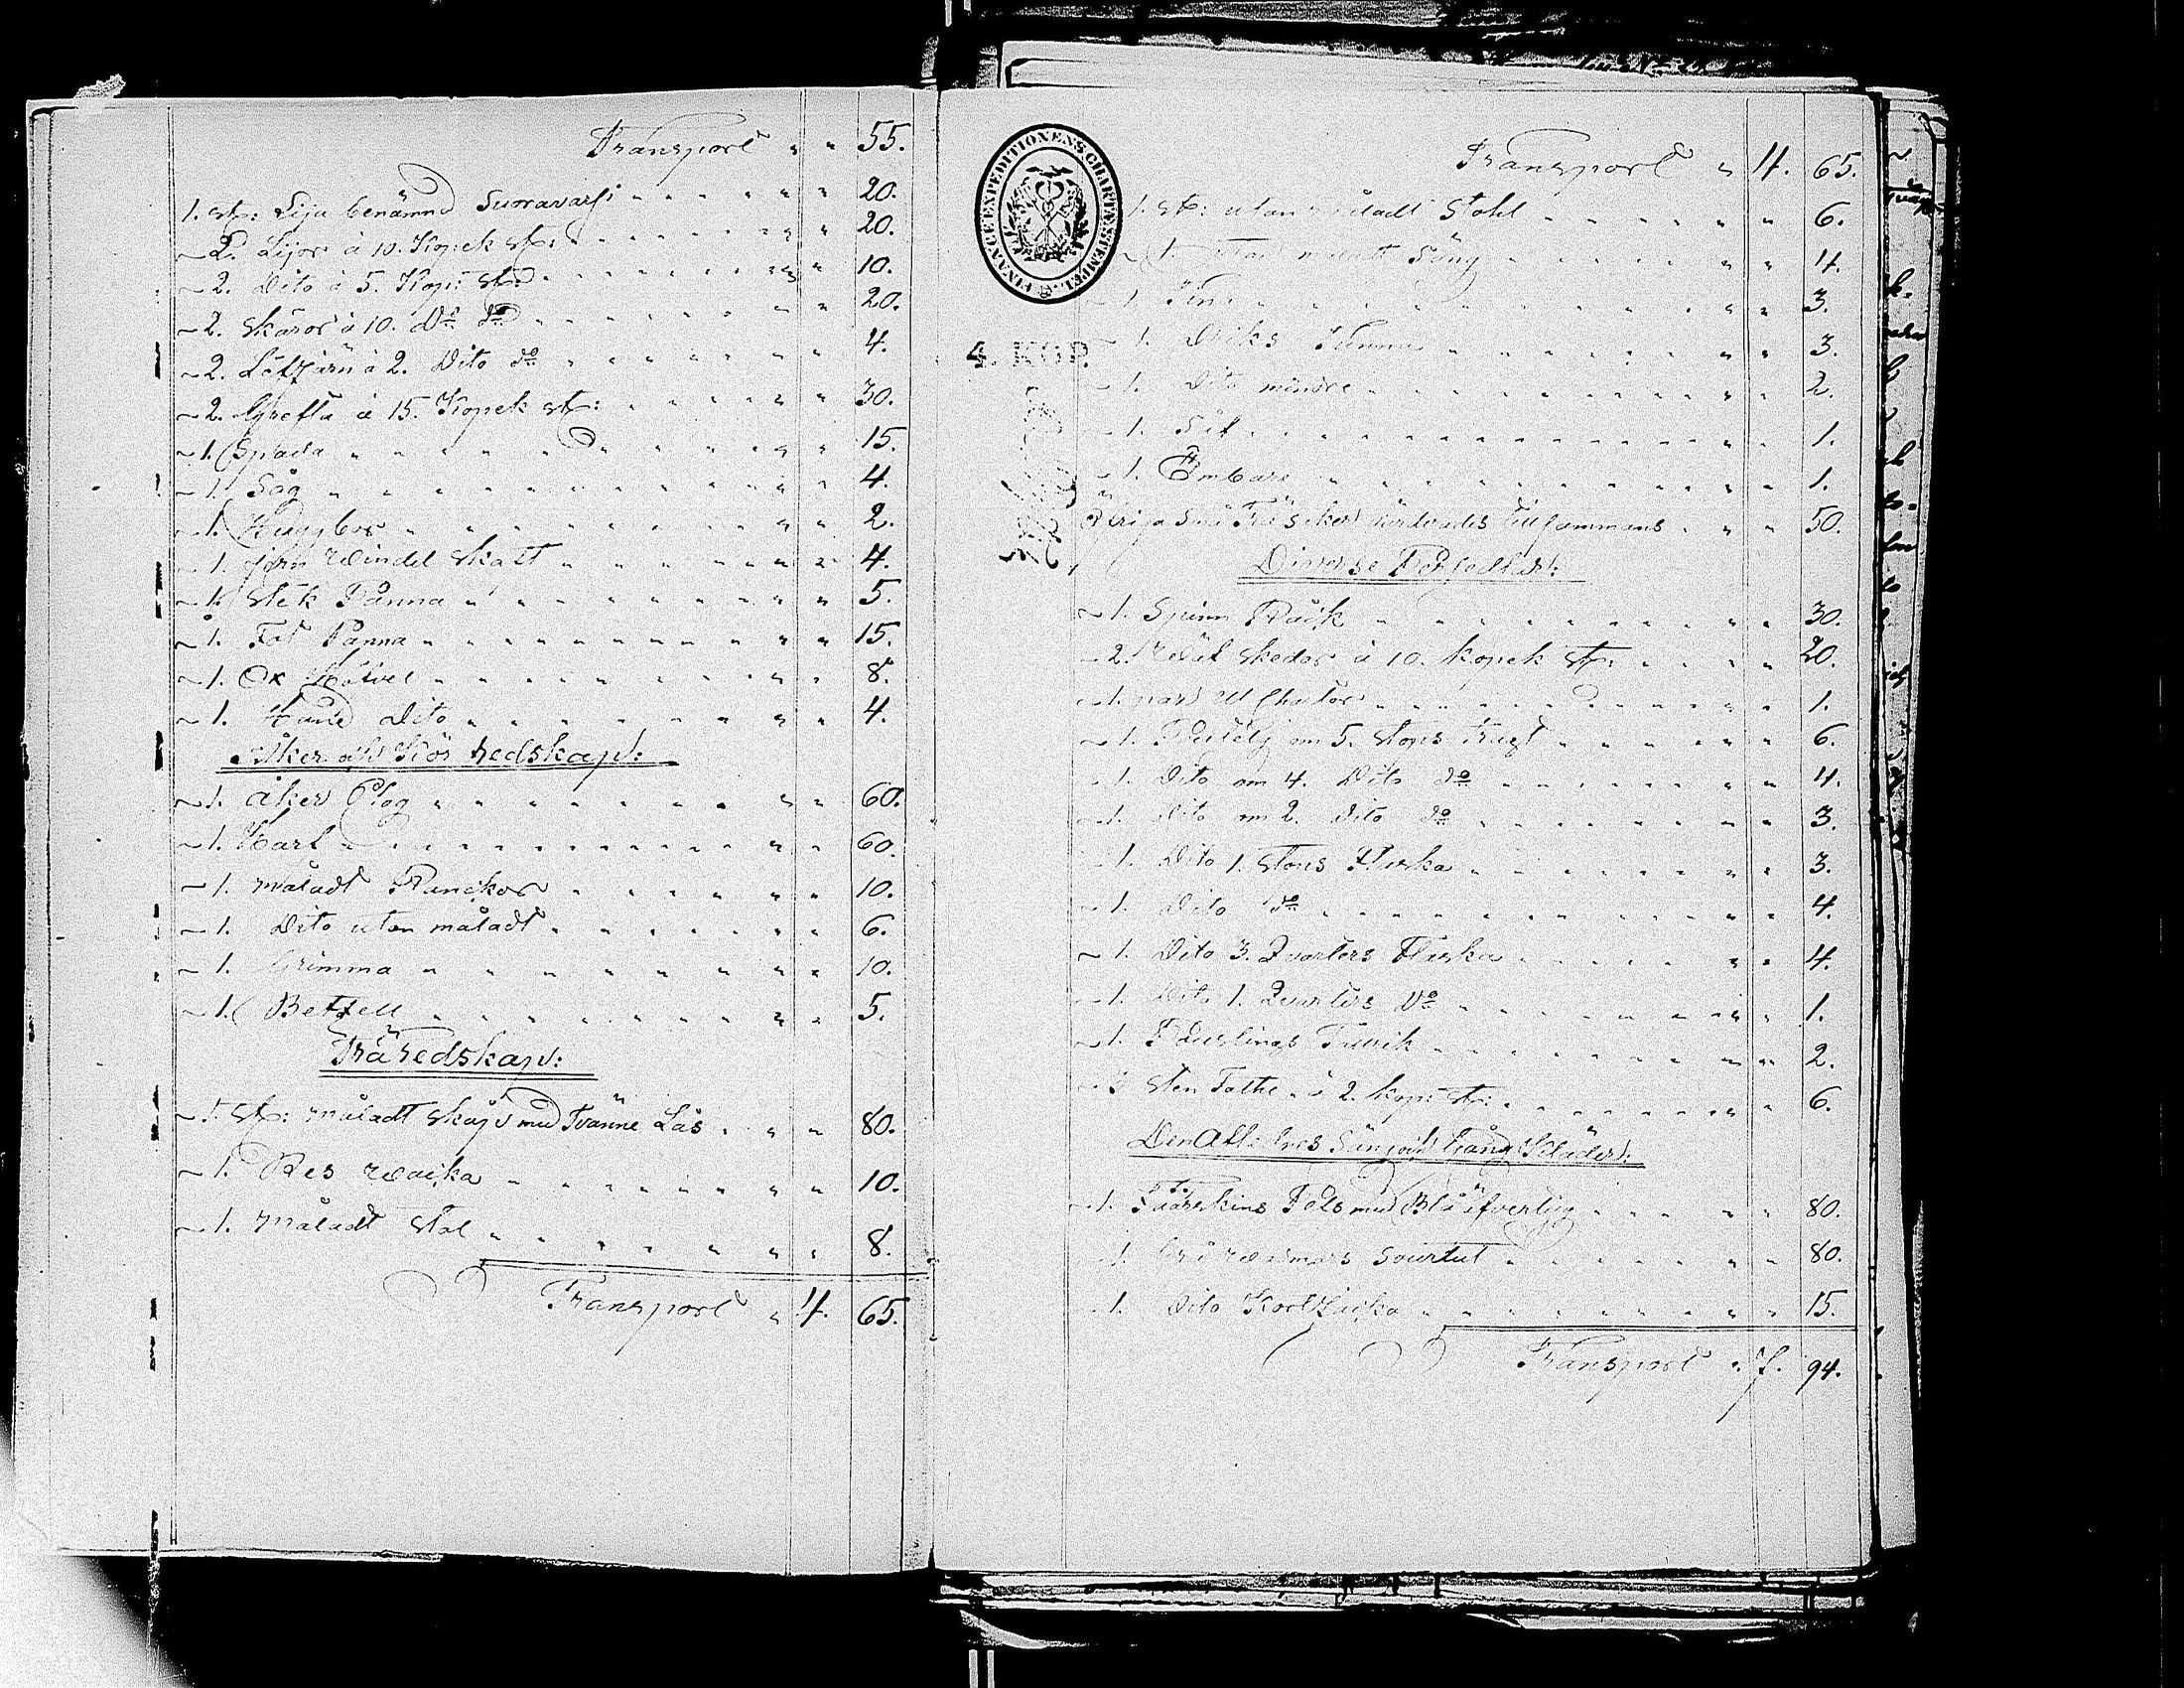 Transport " " 55.
1. st: Lija benämnd Suoravarsi " " 20.
~2. Lijor à 10. Kopek st: " " 20.
~2. Dito à 5. Kop: st: " " 10.
~2. Skäror à 10. Do do " " 20.
~2. Löfjärn à 2. Dito do " " 4.
~2. Grefta à 15. Kopek st: " " 30.
~1. Spada " " 15.
~1. Såg " " 4.
~1. " " 2.
~1. Jern Windel skatt " " 4.
~1. Stek Panna " " 5.
~1. Fot Panna " " 15.
~1. Ox " " 8.
~1. Hand Dito " " 4.
Åker och Kör redskap:
~1. åker Plog " " 60.
~1. Harf " " 60.
~1. måladt Ranckor " " 10.
~1. Dito utan måladt " " 6.
~1. Grimma " " 10.
~1. Betzell " " 5.
Träredskap:
~1. st: måladt skåp med Tvänne Lås " " 80.
~1. Res " " 10.
~1. måladt stol " " 8.
Transport " 4. 65.
FINANCE EXPEDITIONENS CHARTÆ STEMPEL
4. KOP.
Transport " 4. 65.
1. st: utan måladt Stohl " " 6.
1. utan måladt Säng " " 4.
1. Tina " " 3.
~1. Dricks Tunna " " 3.
~1. Dito mindre " " 2.
~1. Såt " " 1.
~1. Ämbare " " 1.
Öfriga Små Träsaker värderades tillsammans " " 50.
Diverse Persedlar:
~1. Spinn Råck " " 30.
~2. Wäf skedar à 10. Kopek st: " " 20.
~1. par " " 1.
~1. Butelj om 5. Stops rugt " " 6.
~1. Dito om 4. Dito do " " 4.
~1. Dito om 2. Dito do " " 3.
~1. Dito 1. Stops Flaska " " 3.
~1. Dito do " " 4.
~1. Dito 3. Qvarters Flaska " " 4.
~1. Dito 1. Quarters Do " " 1.
~1. " " 2.
~3 Sten à 2. Kop: st: " " 6.
Den Aflednes Säng och Gång Kläder:
~1. Fåårskins Pels med Blå öfvertyg " " 80.
~1. Grå wadmars Sourtut " " 80.
~1. Dito Kort " " 15.
Transport " 7. 94.